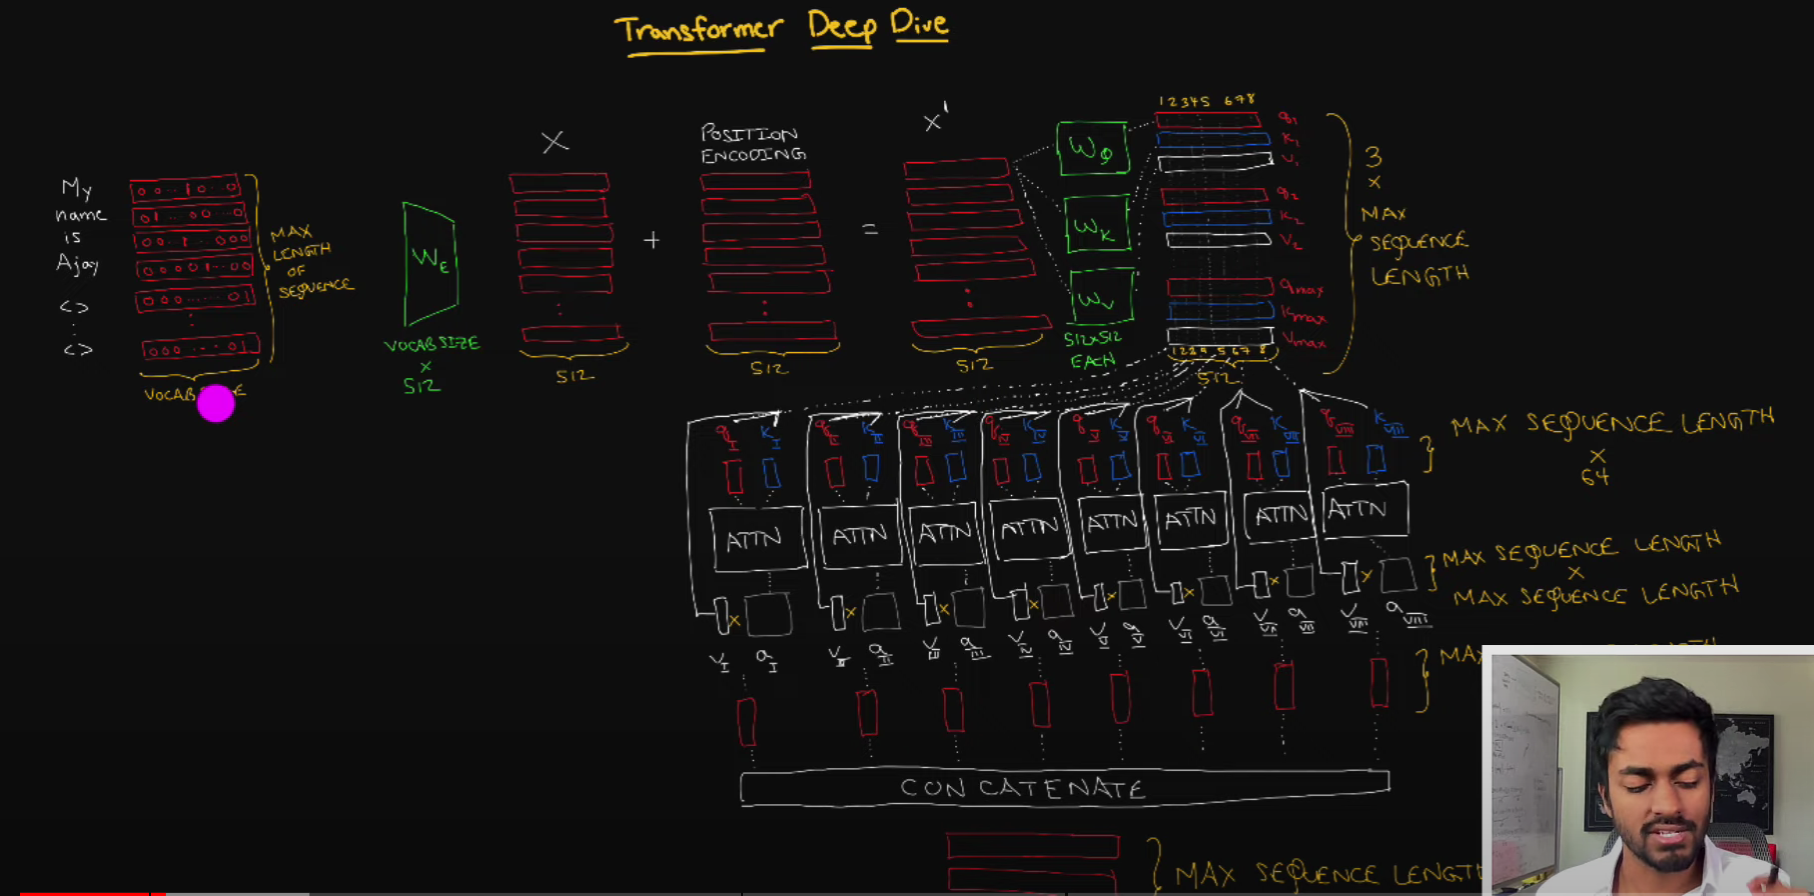 Transformer Deep Dive
My
name
is
Ajay
<>
<>
00..10..0
01...00..0
00..1..000
00001..00
000......01
000....01
MAX
LENGTH
OF
SEQUENCE
VOCAB
WE
VOCAB SIZE
X
512
X
512
+
POSITION
ENCODING
512
=
X'
512
WQ
WK
WV
512x512
EACH
12345 678
q1
K1
V1
q2
K2
V2
qmax
Kmax
Vmax
512
3
X
MAX
SEQUENCE
LENGTH
qI KI
qII KII
qIII KIII
qIV KIV
qV KV
qVI KVI
qVII KVII
qVIII KVIII
MAX SEQUENCE LENGTH
X
64
ATTN ATTN ATTN ATTN ATTN ATTN ATTN ATTN
MAX SEQUENCE LENGTH
X
MAX SEQUENCE LENGTH
x x x x x x x x
VI aI
VII aII
VIII aIII
VIV aIV
VV aV
VVI aVI
VVII aVII
VVIII aVIII
CONCATENATE
MAX SEQUENCE LENGTH